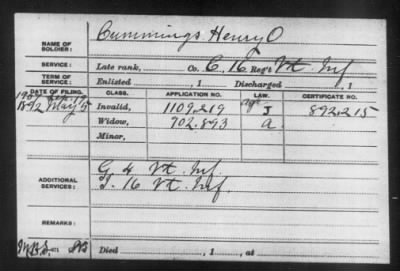 NAME OF SOLDIER: Cummings Henry O
SERVICE: Late rank, Co. C. 16 Reg't Vt. Inf
TERM OF SERVICE: Enlisted , 1 Discharged , 1
DATE OF FILING. CLASS. APPLICATION NO. LAW. CERTIFICATE NO.
1892 May 5 Invalid, 1109219 J 892215
Widow, 702.893 a.
Minor,
ADDITIONAL SERVICES: G 4 Vt. Inf.
16 Vt. Inf.
REMARKS:
Died , 1 , at